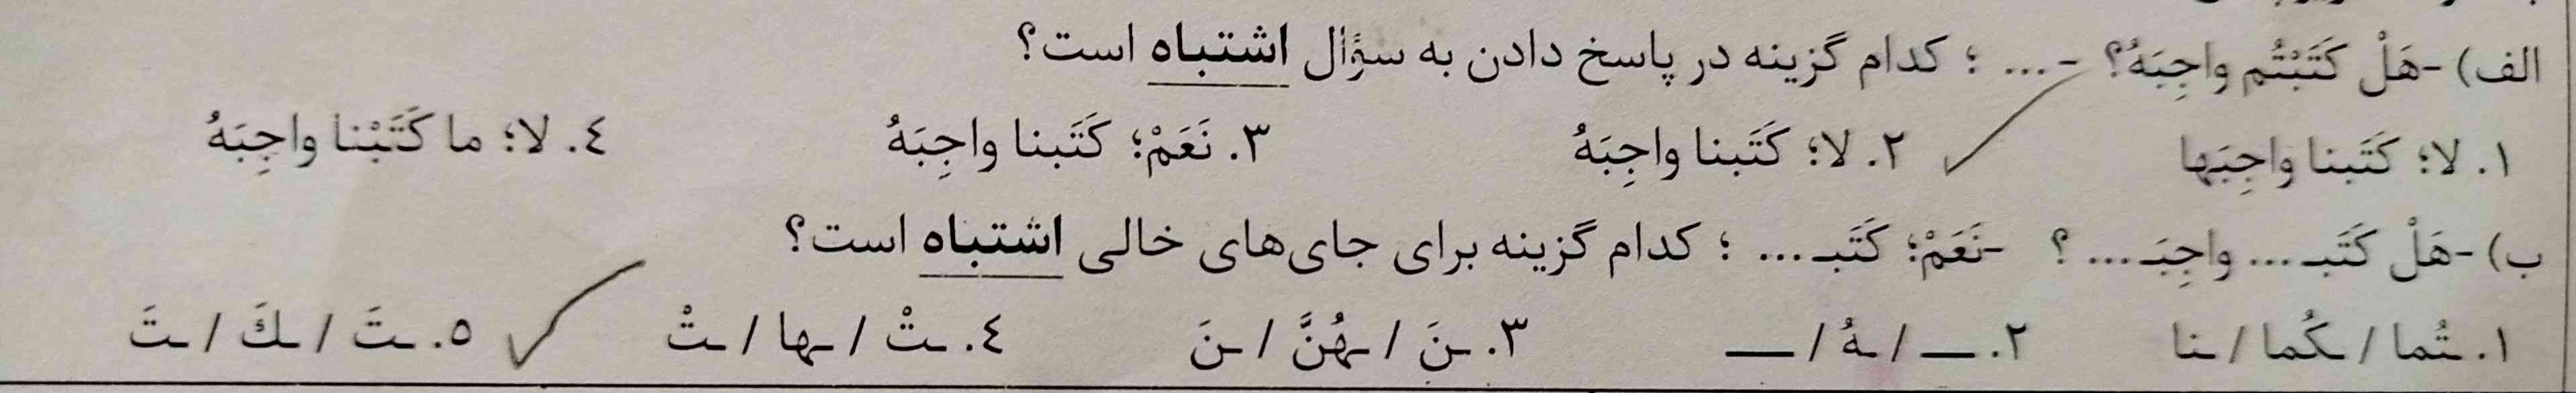 الف) -هَلْ كَتَبْتُم واجِبَهُ؟ -... ؛ کدام گزینه در پاسخ دادن به سؤال اشتباه است؟
١. لا؛ كَتَبنا واجِبَها ٢. لا؛ كَتَبنا واجِبَهُ ٣. نَعَمْ؛ كَتَبنا واجِبَهُ ٤. لا؛ ما كَتَبْنا واجِبَهُ
ب) -هَلْ كَتَبـ ... واجِبَـ ... ؟ -نَعَمْ؛ كَتَبـ ... ؛ کدام گزینه برای جای‌های خالی اشتباه است؟
١. ـتُما / ـكُما / ـنا ٢. ــ / ـهُ / ــ ٣. ـنَ / ـهُنَّ / ـنَ ٤. ـتْ / ـها / ـتْ ٥. ـتَ / ـكَ / ـتَ